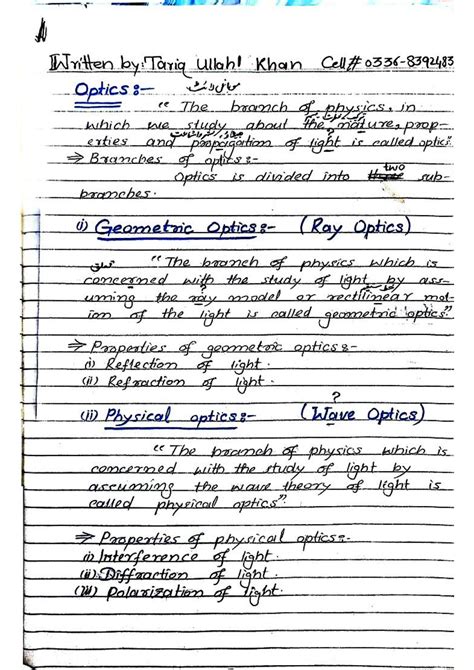 Written by: Tariq Ullah! Khan Cell# 0336-8392483
Optics:-
"The branch of physics, in
which we study about the nature, prop-
erties and propagation of light is called optics
⇒ Branches of optics:-
Optics is divided into two sub-
branches.
(i) Geometric Optics:- (Ray Optics)
"The branch of physics which is
concerned with the study of light by ass-
uming the ray model or rectilinear mot-
ion of the light is called geometric optics".
⇒ Properties of geometric optics:-
(i) Reflection of light.
(ii) Refraction of light.
?
(ii) Physical optics:- (Wave Optics)
"The branch of physics which is
concerned with the study of light by
assuming the wave theory of light is
called physical optics"
⇒ Properties of physical optics:-
(i) Interference of light.
(ii) Diffraction of light.
(iii) Polarization of light.